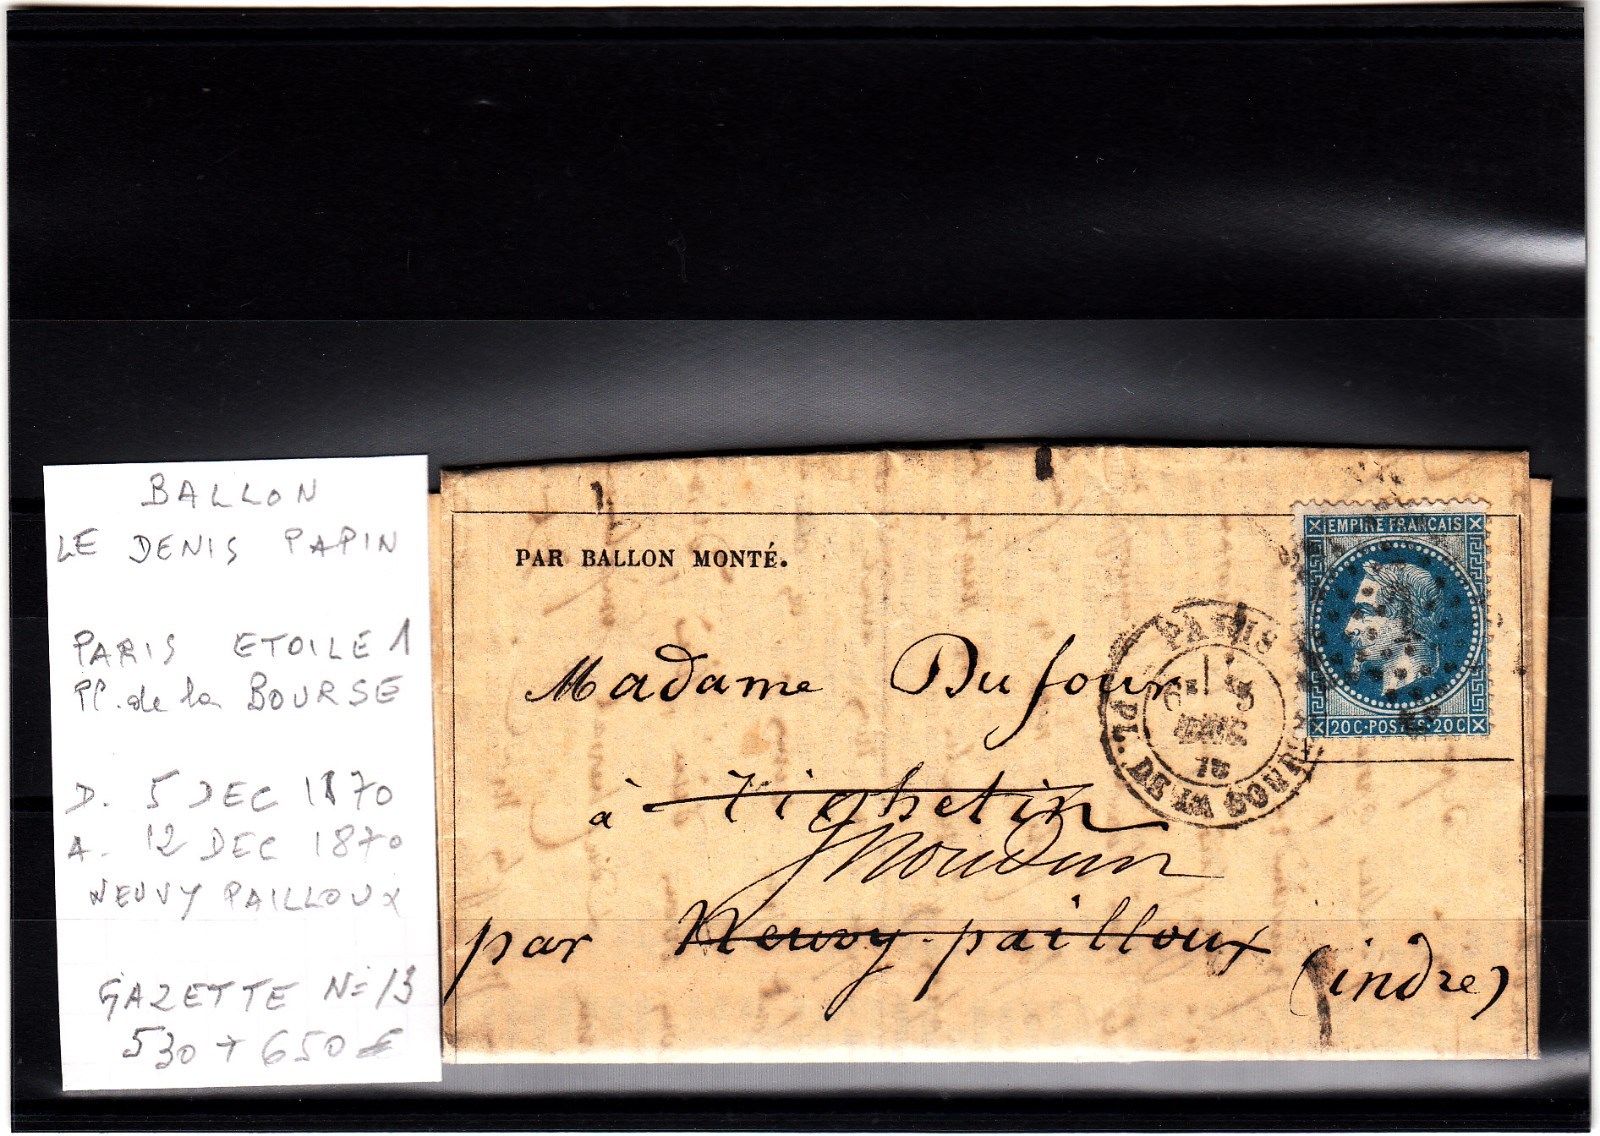 BALLON
LE DENIS PAPIN
PARIS ETOILE 1
Pl. de la BOURSE
D. 5 DEC 1870
A. 12 DEC 1870
NEUVY PAILLOUX
GAZETTE N= 13
530 + 650 €
PAR BALLON MONTÉ.
EMPIRE FRANCAIS
20 C · POSTES · 20 C
PARIS
PL. DE LA BOURSE
6
5
DEC
70
Madame Dufour
à
par Neuvy-pailloux (indre)